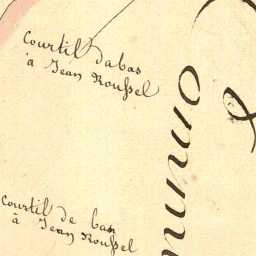 Courtil dabas
à Jean Roussel
Courtil de bas
à Jean Roussel